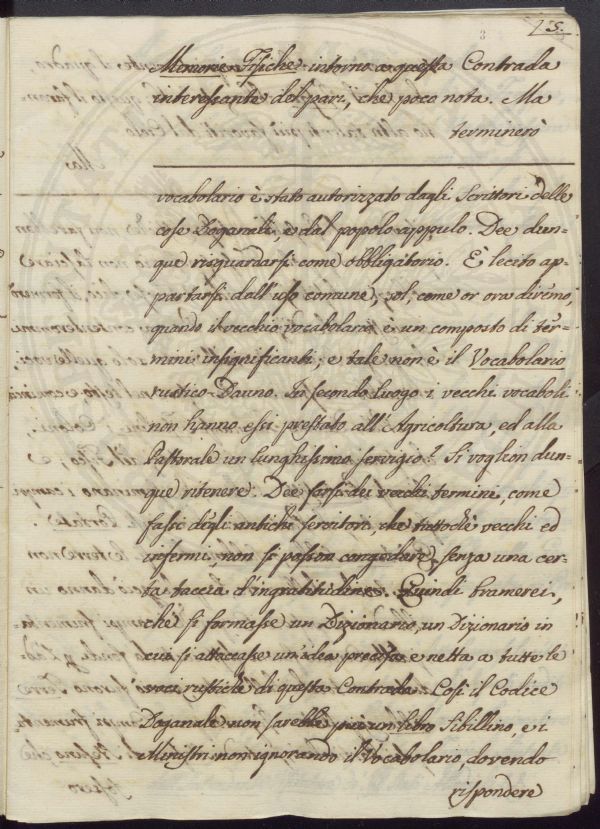 15.
Memorie Fisiche intorno a questa Contrada
interessante del pari, che poco nota. Ma
terminerò
vocabolario è stato autorizzato dagli Scrittori delle
cose Doganali, e dal popolo appulo. Dee dun=
que risguardarsi come obbligatorio. È lecito ap=
partarsi dall'uso comune, sol, come or ora diremo,
quando il vecchio vocabolario è un composto di ter=
mini insignificanti, e tale non è il Vocabolario
rustico-Dauno. In secondo luogo i vecchi vocaboli
non hanno essi prestato all'Agricoltura, ed alla
Pastorale un lunghissimo servigio? Si voglion dun=
que ritenere. Dee farsi dei vecchi termini, come
fassi degli antichi servitori, che tuttochè vecchi ed
infermi, non si posson congedare senza una cer=
ta taccia d'ingratitudine. Quindi bramerei,
che si formasse un Dizionario, un Dizionario in
cui si attaccasse un'idea precisa e netta a tutte le
voci rustiche di questa Contrada. Così il Codice
Doganale non sarebbe più un libro Sibillino, e i
Ministri non ignorando il Vocabolario, dovendo
rispondere